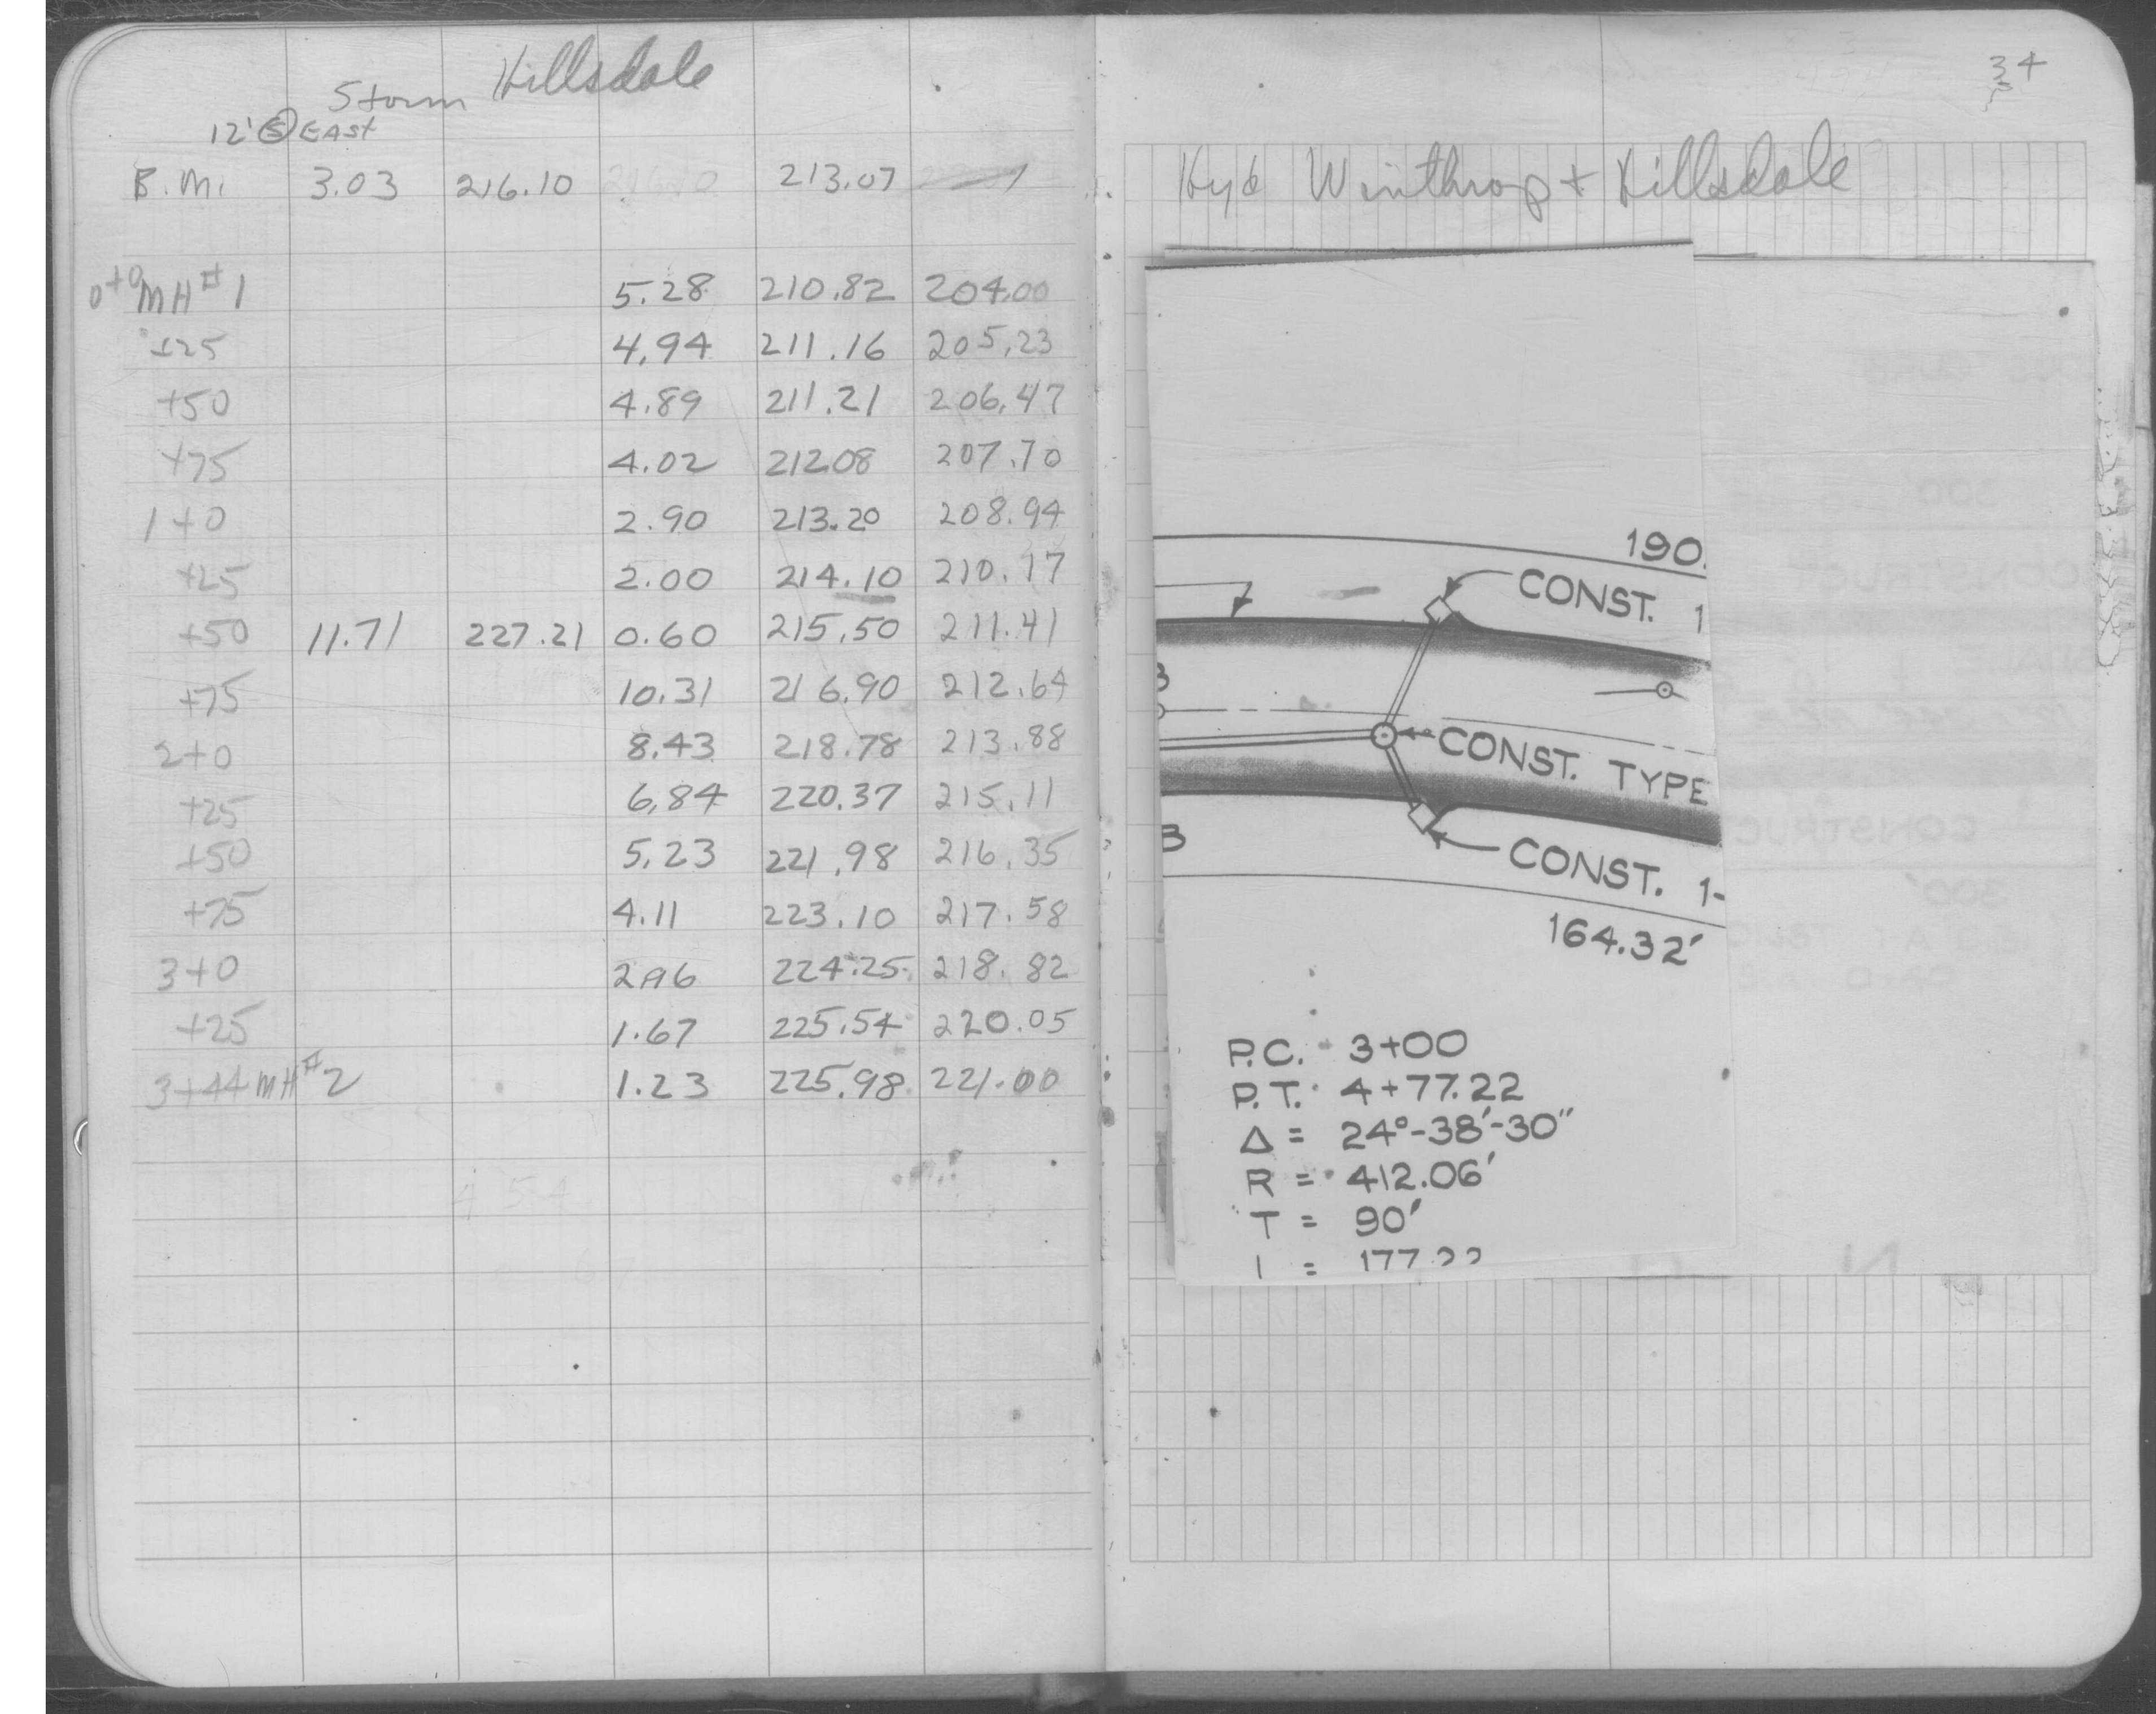 Storm Hillsdale
12' Ⓢ EAST
B.M. 3.03 216.10 213.07
0+0 MH#1 5.28 210.82 204.00
+25 4.94 211.16 205.23
+50 4.89 211.21 206.47
+75 4.02 212.08 207.70
1+0 2.90 213.20 208.94
+25 2.00 214.10 210.17
+50 11.71 227.21 0.60 215.50 211.41
+75 10.31 216.90 212.64
2+0 8.43 218.78 213.88
+25 6.84 220.37 215.11
+50 5.23 221.98 216.35
+75 4.11 223.10 217.58
3+0 2.96 224.25 218.82
+25 1.67 225.54 220.05
3+44 MH#2 1.23 225.98 221.00
34
Hyd Winthrop + Hillsdale
190.
CONST. 1
CONST. TYPE
B
CONST. 1-
164.32'
P.C. 3+00
P.T. 4+77.22
Δ = 24°-38'-30"
R = 412.06'
T = 90'
L = 177.22